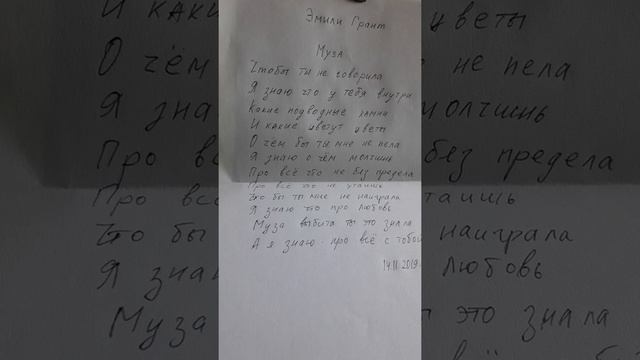 Эмили Грант
Муза
Чтобы ты не говорила
Я знаю что у тебя внутри
Какие подводные камни
И какие цветут цветы
О чём бы ты мне не пела
Я знаю о чём молчишь
Про всё что не без предела
Про всё что не утаишь
Что бы ты мне не наиграла
Я знаю это про любовь
Муза ты это знала
А я знаю про всё с тобой
14.11.2019